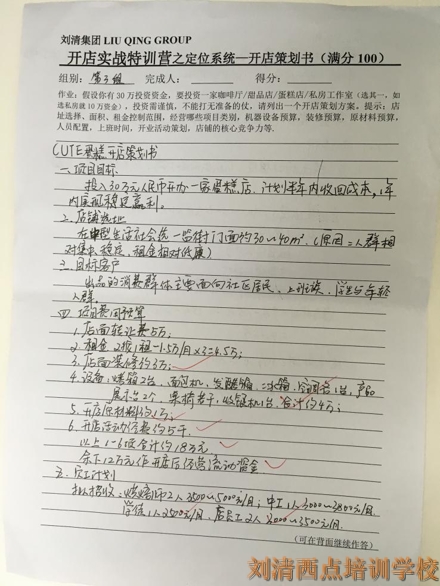 刘清集团 LIU QING GROUP
开店实战特训营之定位系统—开店策划书（满分100）
组别：第3组 完成人： 得分：
作业：假设你有30万投资资金，要投资一家咖啡厅/甜品店/蛋糕店/私房工作室（选其一，如
选私房就10万资金），投资需谨慎，不能打无准备的仗，请列出一个开店策划方案。提示：店
址选择、面积、租金控制范围，经营哪些项目类别，机器设备预算，装修预算，原材料预算，
人员配置，上班时间，开业活动策划，店铺的核心竞争力等。
CUTE蛋糕开店策划书
一、项目目标
投入30万元人民币开办一家蛋糕店，计划半年内收回成本，1年
内实现稳定盈利。
2、店铺选址
生活社会统一临街门面约30~40m²（原因：人群相
对集中稳定，租金相对优廉）
三、目标客户
出品的消费群体主要面向社区居民、上班族、学生与年轻
人群。
四、项目费用预算
1、店面转让费5万；
2、租金 2按1租-1.5万/月×3=4.5万；
3、店面装修约3万；
4、设备：烤箱2台，面包机，发酵箱，冰箱，1台，产品
展示台2个，桌椅若干，收银机1台，合计约4万；
5、开店原材料约1万；
6、开店活动经费约5千，
以上1-6项合计约18万元
余下12万元作开店后经营流动资金
五、员工计划
拟招收：烘焙师2人3500~5000元/月；中工1人3000~3800元/月
学徒1人2500元/月、店员工2人2000~3500元/月
（可在背面继续作答）
刘清西点培训学校